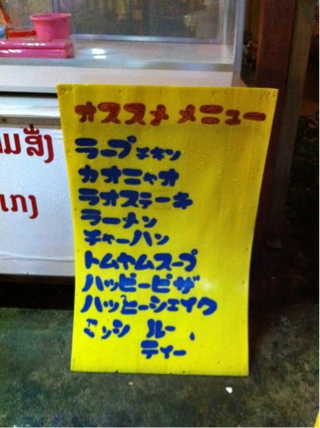 オススメ メニュー
ラープチキン
カオニャオ
ラオステーキ
ラーメン
チャーハン
トムヤムスープ
ハッピーピザ
ハッピーシェイク
ミッシ ルー
ティー